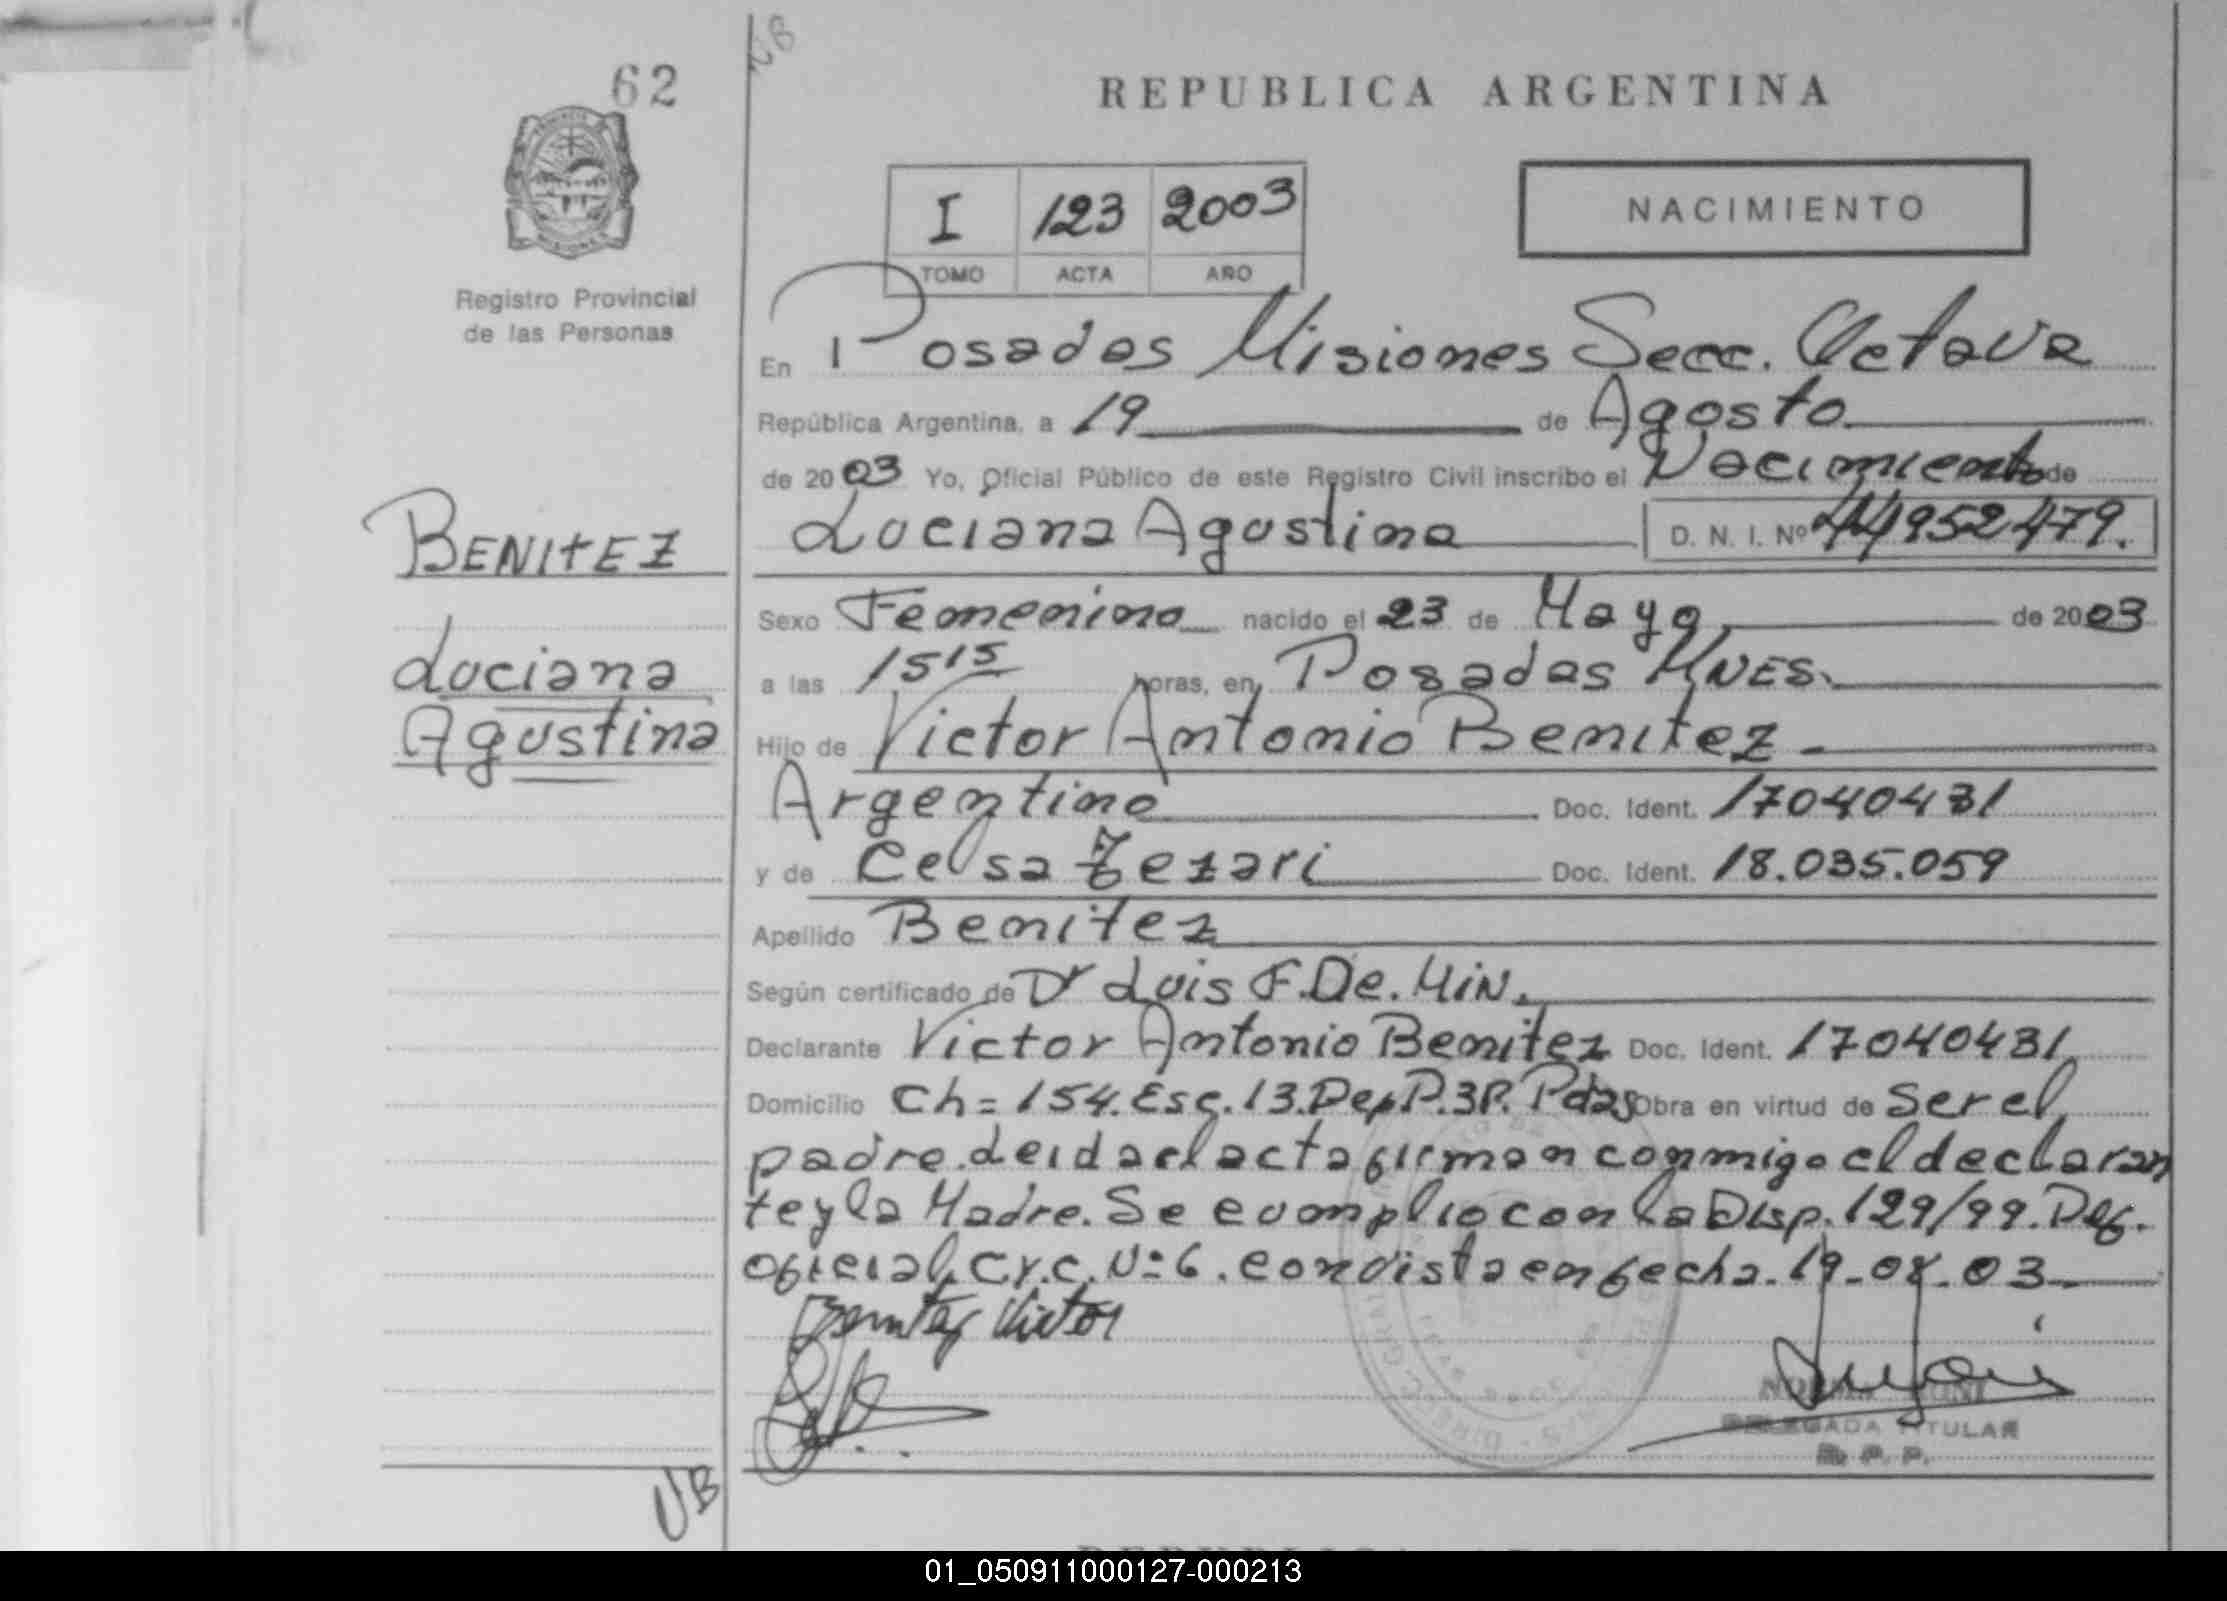 62
NB
REPUBLICA ARGENTINA
I 123 2003
TOMO ACTA AÑO
NACIMIENTO
Registro Provincial
de las Personas
En Posadas Misiones Secc. Octava
República Argentina, a 19 de Agosto
de 2003 Yo, Oficial Público de este Registro Civil inscribo el Nacimiento de
Luciana Agustina D. N. I. Nº 44952479.
BENITEZ
Luciana
Agustina
Sexo Femenino nacido el 23 de Mayo de 2003
a las 15 15 horas, en Posadas MNES.
Hijo de Victor Antonio Benitez
Argentino Doc. Ident. 17040431
y de Celsa Doc. Ident. 18.035.059
Apellido Benitez
Según certificado de Dr Luis F. De. Min.
Declarante Victor Antonio Benitez Doc. Ident. 17040431
Domicilio Ch= 154. Esc. 13. Dep P. 3P. Pdas Obra en virtud de ser el
padre. Leida el acta firman conmigo el declaran
te y la Madre. Se cumplio con la Disp. 129/99. Def.
oficial C.y.c. Nº 6. con vista en fecha. 19-08-03
Benitez Victor
DELEGADA TITULAR
R. P. P.
NB
01_050911000127-000213